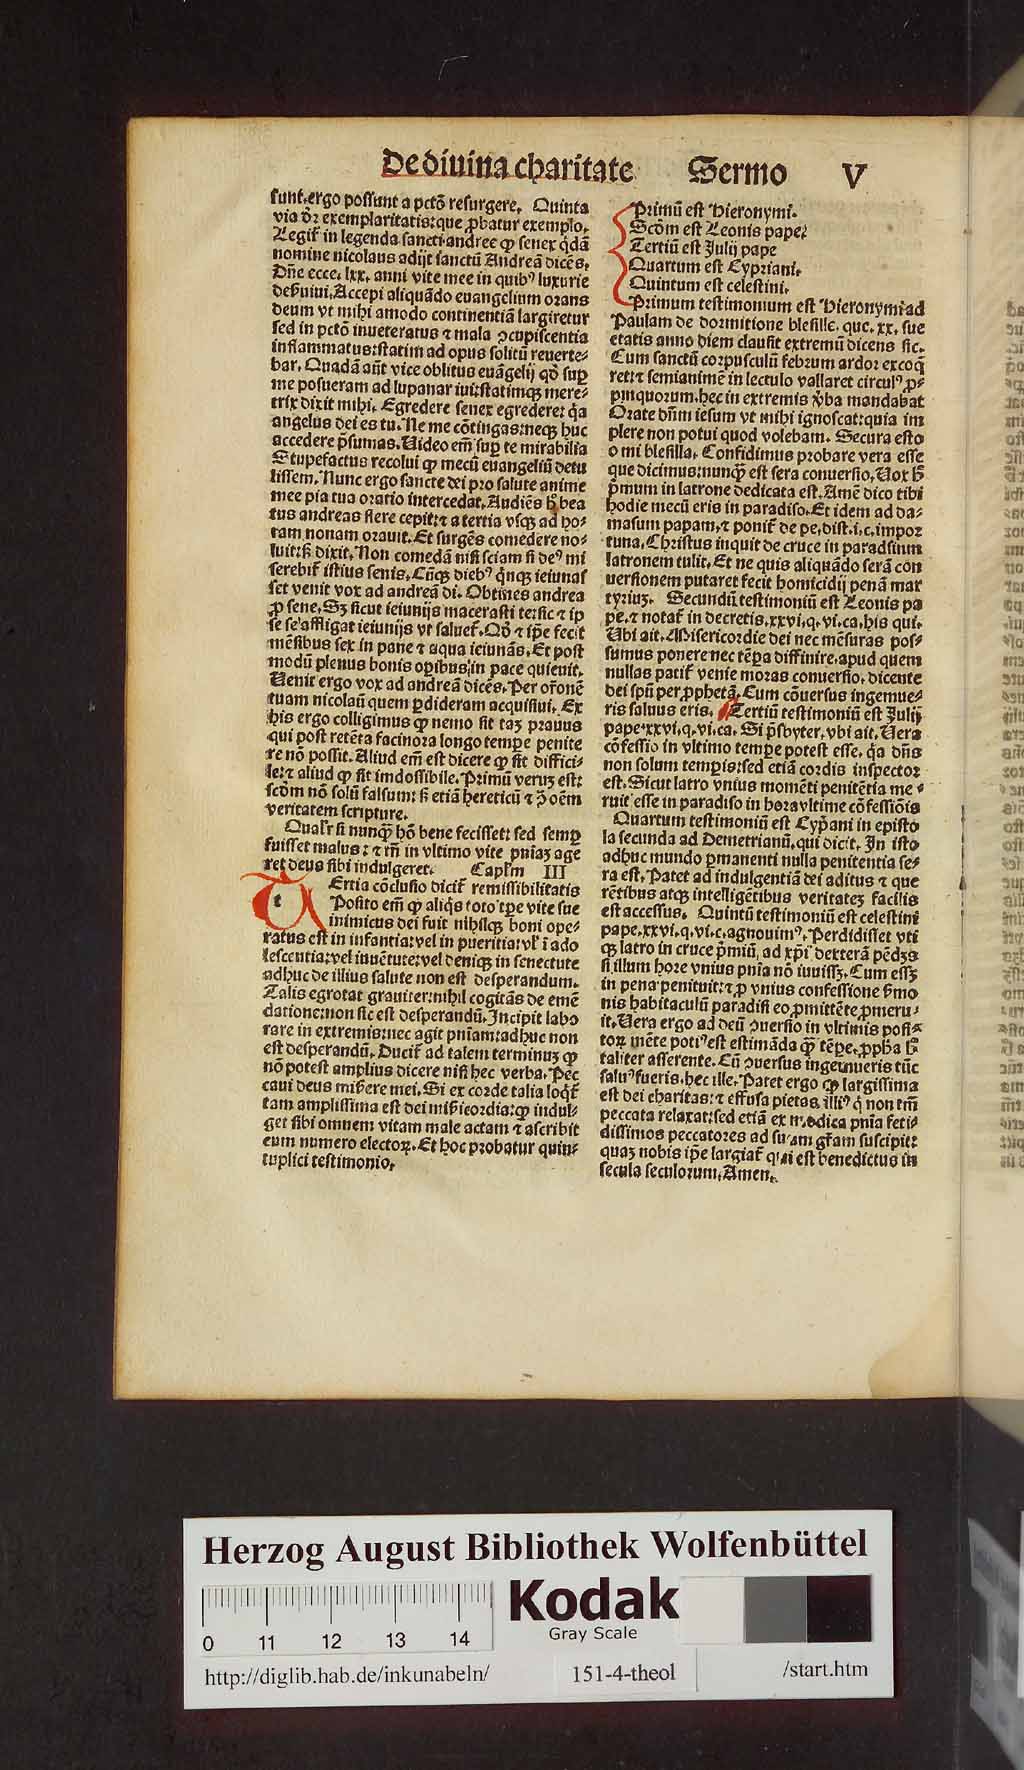 De diuina charitate Sermo V
sunt. ergo possunt a pctō resurgere. Quinta
via dr̄ exemplaritatis: que ꝓbatur exemplo.
Legit̄ in legenda sancti andree ꝙ senex q̄dā
nomine nicolaus adijt sanctū Andreā dicēs.
Dñe ecce. lxx. anni vite mee in quibꝰ luxurie
deſſuiui. Accepi aliquādo euangelium orans
deum vt mihi amodo continentiā largiretur
sed in pctō inueteratus ⁊ mala ↄcupiscentia
inflammatus: statim ad opus solitū reuerte-
bar. Quadā aūt vice oblitus euāgelij qd̄ sup̄
me posueram ad lupanar iui: statimqꝫ mere-
trix dixit mihi. Egredere senex egredere: q̄a
angelus dei es tu. Ne me cōtingas: neqꝫ huc
accedere p̄sumas. Uideo em̄ sup̄ te mirabilia
Stupefactus recolui ꝙ mecū euangeliū detu
lissem. Nunc ergo sancte dei pro salute anime
mee pia tua oratio intercedat. Audiēs h̄ bea
tus andreas flere cepit: ⁊ a tertia vsqꝫ ad ho-
ram nonam orauit. Et surgēs comedere no-
luit: s̄ dixit. Non comedā nisi sciam si deꝰ mi
serebit̄ istius senis. Cūqꝫ diebꝰ q̄nqꝫ ieiunas
set venit vox ad andreā di. Obtines andrea
ꝓ sene. Sꝫ sicut ieiunijs macerasti te: sic ⁊ ip
se se affligat ieiunijs vt saluet̄. Qd̄ ⁊ ip̄e fecit
mēsibus sex in pane ⁊ aqua ieiunās. Et post
modū plenus bonis oꝑibus, in pace quieuit.
Uenit ergo vox ad andreā dicēs. Per or̄onē
tuam nicolaū quem ꝑdideram acquisiui. Ex
his ergo colligimus ꝙ nemo sit taꝫ prauus
qui post retēta facinora longo tempe penite
re nō possit. Aliud em̄ est dicere ꝙ sit diffici-
le: ⁊ aliud ꝙ sit imdossibile. Primū veruꝫ est:
scđm nō solū falsum: s̄ etiā hereticū ⁊ ↄ̄ oēm
veritatem scripture.
Qual̄r si nunqꝫ hō bene fecisset: sed semꝑ
fuisset malus: ⁊ tn̄ in vltimo vite pn̄iaꝫ age
ret deus sibi indulgeret. Capl̄m III
TErtia cōclusio dicit̄ remissibilitatis
Posito em̄ ꝙ aliq̄s toto tp̄e vite sue
inimicus dei fuit nihilqꝫ boni ope-
ratus est in infantia: vel in pueritia: vl̄ ī ado
lescentia: vel iuuētute: vel deniqꝫ in senectute
adhuc de illius salute non est desperandum.
Talis egrotat grauiter: nihil cogitās de emē
datione: non sic est desperandū. Incipit labo
rare in extremis: nec agit pn̄iam: adhuc non
est desperandū. Ducit̄ ad talem terminuꝫ ꝙ
nō potest amplius dicere nisi hec verba. Pec
caui deus mi�erere mei. Si ex corde talia loqt̄
tam amplissima est dei miīeordia: ꝙ indul-
get sibi omnem vitam male actam ⁊ ascribit
eum numero electoꝝ. Et hoc probatur quin-
tuplici testimonio.
Primū est Hieronymi.
Scđm est Leonis pape.
Tertiū est Julij pape
Quartum est Cypriani.
Quintum est celestini.
Primum testimonium est Hieronymi ad
Paulam de dormitione blesille. que. xx. sue
etatis anno diem clausit extremū dicens sic.
Cum sanctū corpusculū febrium ardor excoq̄
ret: ⁊ semianimē in lectulo vallaret circulꝰ ꝓ-
pinquorum. hec in extremis v̄ba mandabat
Orate dn̄m iesum vt mihi ignoscat: quia im
plere non potui quod volebam. Secura esto
o mi blesilla. Confidimus probare vera esse
que dicimus: nunqꝫ est sera conuersio. Uox h̄
p̄mum in latrone dedicata est. Amē dico tibi
hodie mecū eris in paradiso. Et idem ad da-
masum papam. ⁊ ponit̄ de pe. dist. i. c. impor
tuna. Christus inquit de cruce in paradisum
latronem tulit. Et ne quis aliquādo serā con
uersionem putaret fecit homicidij penā mar
tyriuꝫ. Secundū testimoniū est Leonis pa
pe. ⁊ notat̄ in decretis. xxvi. q. vi. ca. his qui.
Ubi ait. Misericordie dei nec mēsuras pos-
sumus ponere nec tēpa diffinire. apud quem
nullas patit̄ venie moras conuersio. dicente
dei spū per ꝓphetā. Cum cōuersus ingemue-
ris saluus eris. Tertiū testimoniū est Julij
pape. xxvi. q. vi. ca. Si p̄sbyter. vbi ait. Uera
cōfessio in vltimo tempe potest esse. q̄a dn̄s
non solum tempis: sed etiā cordis inspector
est. Sicut latro vnius momēti penitētia me-
ruit esse in paradiso in hora vltime cōfessiōis
Quartum testimoniū est Cyp̄ani in episto
la secunda ad Demetrianū. qui dicit. In isto
adhuc mundo ꝑmanenti nulla penitentia se-
ra est. Patet ad indulgentiā dei aditus ⁊ que
rētibus atqꝫ intelligētibus veritateꝫ facilis
est accessus. Quintū testimoniū est celestini
pape. xxvi. q. vi. c. agnouimꝰ. Perdidisset vti
qꝫ latro in cruce p̄miū. ad xp̄i dexterā pēdꝫs
si illum hore vnius pn̄ia nō iuuissꝫ. Cum essꝫ
in pena penituit: ⁊ ꝓ vnius confessione s̄mo
nis habitaculū paradisi eo ꝓmittēte ꝓmeru-
it. Uera ergo ad deū ↄuersio in vltimis posi-
toꝝ mēte potiꝰ est estimāda qꝫ tēpe. ꝓpħa h̄
taliter asserente. Cū ↄuersus ingemueris tūc
saluꝰ fueris. hec ille. Patet ergo ꝙ largissima
est dei charitas: ⁊ effusa pietas illiꝰ q̄ non tm̄
peccata relaxat: sed etiā ex modica pn̄ia feti-
dissimos peccatores ad suam gr̄am suscipit:
quaꝫ nobis ip̄e largiat̄ qui est benedictus in
secula seculorum. Amen.
Herzog August Bibliothek Wolfenbüttel
Kodak
Gray Scale
0 11 12 13 14
http://diglib.hab.de/inkunabeln/ 151-4-theol /start.htm